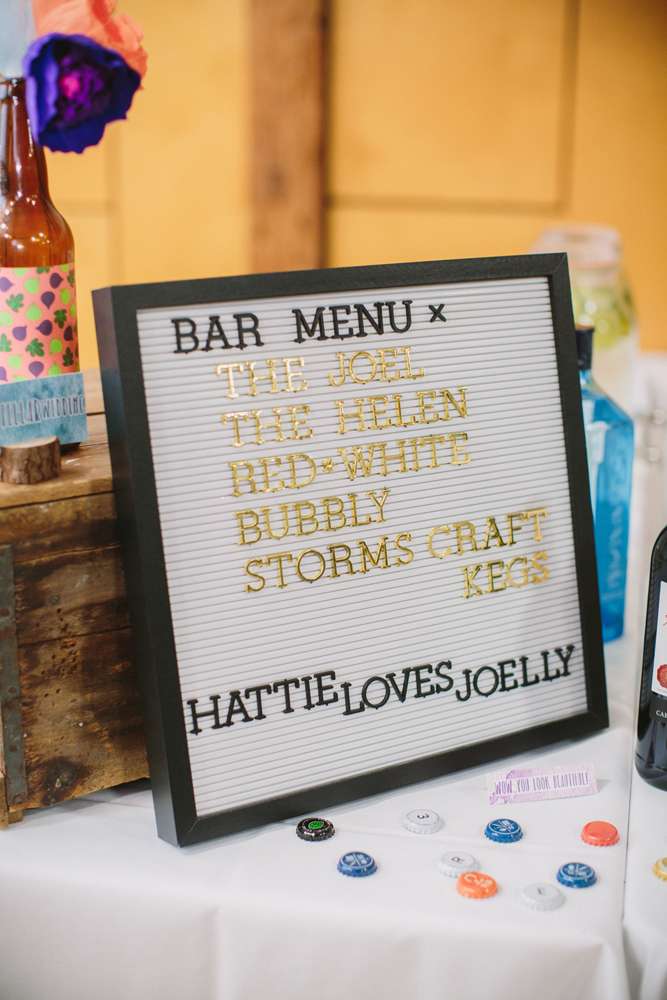 BAR MENU ×
THE JOEL
THE HELEN
RED × WHITE
BUBBLY
STORMS CRAFT
KEGS
HATTIE LOVES JOELLY
WOW, YOU LOOK BEAUTIFUL!